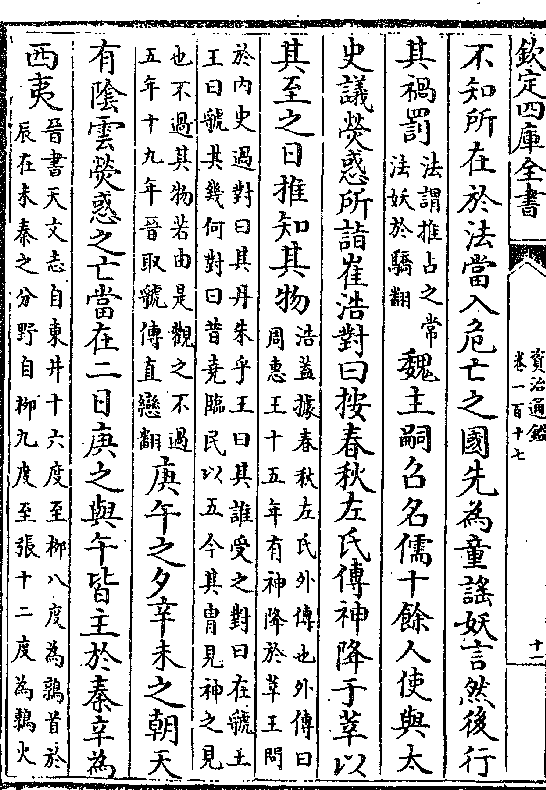 欽定四庫全書
資治通鑑
卷一百十七
十二
不知所在於法當入危亡之國先為童謡妖言然後行
其禍罰法謂推占之常法妖於驕翻魏主嗣召名儒十餘人使與太
史議熒惑所詣崔浩對曰按春秋左氏傳神降于莘以
其至之日推知其物浩蓋據春秋左氏外傳也外傳曰周惠王十五年有神降於莘王問
於内史過對曰其丹朱乎王曰其誰受之對曰在虢土王曰虢其幾何對曰昔堯臨民以五今其胄見神之見
也不過其物若由是觀之不過五年十九年晉取虢傳直戀翻庚午之夕辛未之朝天
有隂雲熒惑之亡當在二日庚之與午皆主於秦辛為
西夷晉書天文志自東井十六度至柳八度為鶉首於辰在未秦之分野自柳九度至張十二度為鶉火